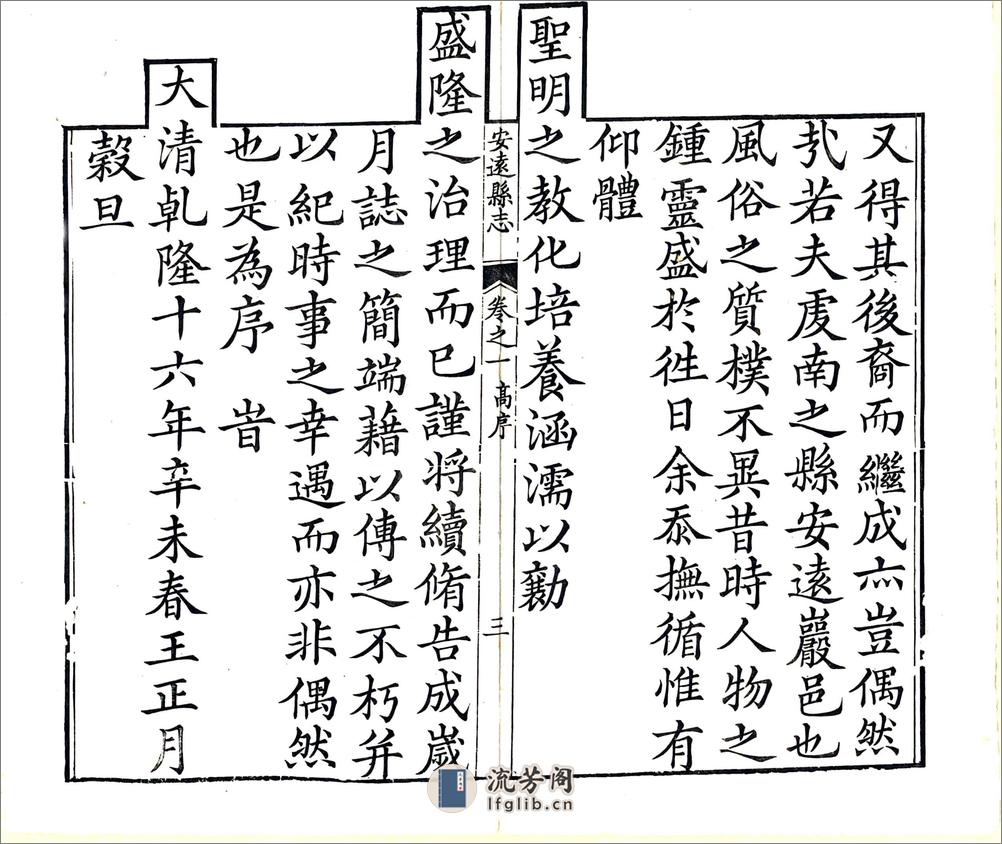 又得其後裔而繼成亦豈偶然
㢤若夫虔南之縣安遠巖邑也
風俗之質樸不異昔時人物之
鍾靈盛於徃日余忝撫循惟有
仰體
聖明之教化培養涵濡以勷
安遠縣志 卷之一 高序 三
盛隆之治理而已謹将續脩告成歲
月誌之簡端藉以傳之不朽并
以紀時事之幸遇而亦非偶然
也是為序 旹
大清乹隆十六年辛未春王正月
榖旦
流芳阁
lfglib.cn